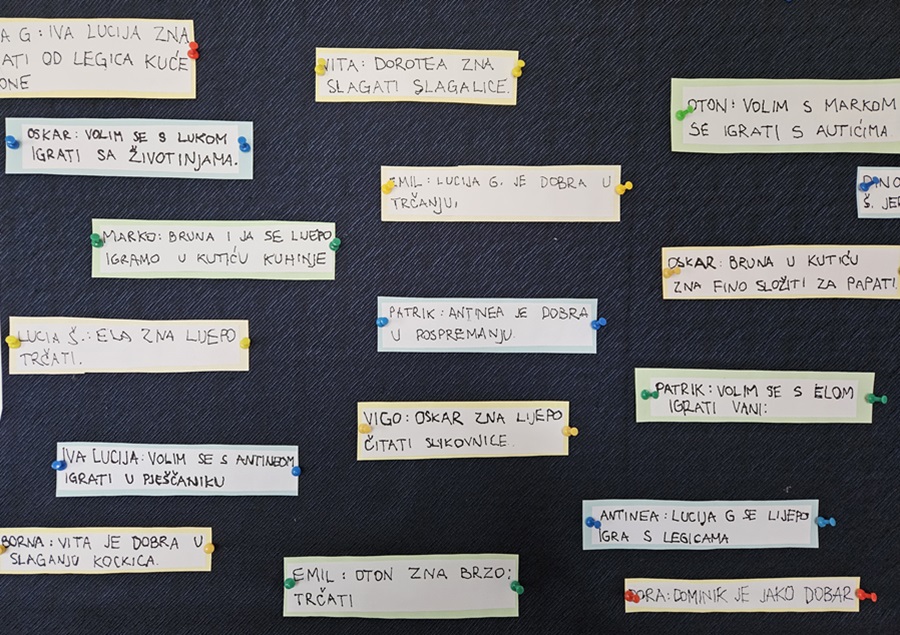 A G: IVA LUCIJA ZNA
ATI OD LEGICA KUĆE
ONE
VITA: DOROTEA ZNA
SLAGATI SLAGALICE.
OTON: VOLIM S MARKOM
SE IGRATI S AUTIĆIMA.
OSKAR: VOLIM SE S LUKOM
IGRATI SA ŽIVOTINJAMA.
EMIL: LUCIJA G. JE DOBRA U
TRČANJU,
DINO
Š. JE
MARKO: BRUNA I JA SE LIJEPO
IGRAMO U KUTIĆU KUHINJE
OSKAR: BRUNA U KUTIĆU
ZNA FINO SLOŽITI ZA PAPATI.
PATRIK: ANTINEA JE DOBRA
U POSPREMANJU.
LUCIA Š.: ELA ZNA LIJEPO
TRČATI.
PATRIK: VOLIM SE S ELOM
IGRATI VANI:
VIGO: OSKAR ZNA LIJEPO
ČITATI SLIKOVNICE.
IVA LUCIJA: VOLIM SE S ANTINEOM
IGRATI U PJEŠČANIKU
ANTINEA: LUCIJA G SE LIJEPO
IGRA S LEGICAMA
BORNA: VITA JE DOBRA U
SLAGANJU KOCKICA.
EMIL: OTON ZNA BRZO:
TRČATI
DORA: DOMINIK JE JAKO DOBAR